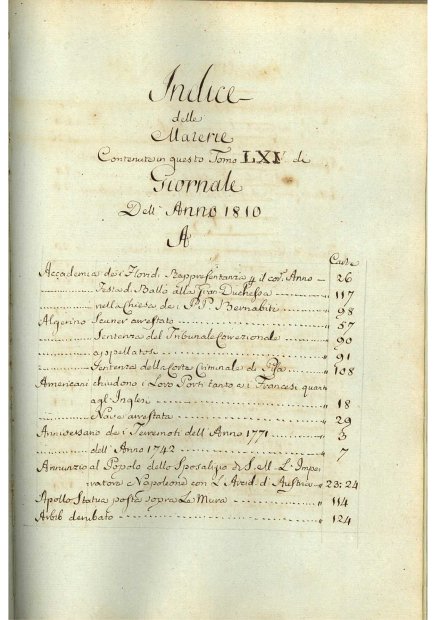 Indice
delle
Materie
Contenute in questo Tomo LXV di
Giornale
Dell' Anno 1810
A
Carte
Accademia de i Floridi Rappresentanza p il cor. Anno 26
Festa di Ballo alla Gran Duchessa 117
nella Chiesa de i P.P. Bernabiti 98
Algerino Seuner arrestato 57
Sentenza del Tribunale Correzionale 90
appellatosi 91
Sentenza della Corte Criminale di Pisa 108
Americani chiudono i Loro Porti tanto a i Francesi quan
agl' Inglesi 18
Nave arrestata 29
Anniversario de i Terremoti dell' Anno 1771 3
dell' Anno 1742 7
Annunzio al Popolo dello Sposalizio di S. M. L' Impe
ratore Napoleone con L' Arcid. d' Austria 23:24
Apollo Statua posta sopra Le Mura 114
Arbib derubato 124